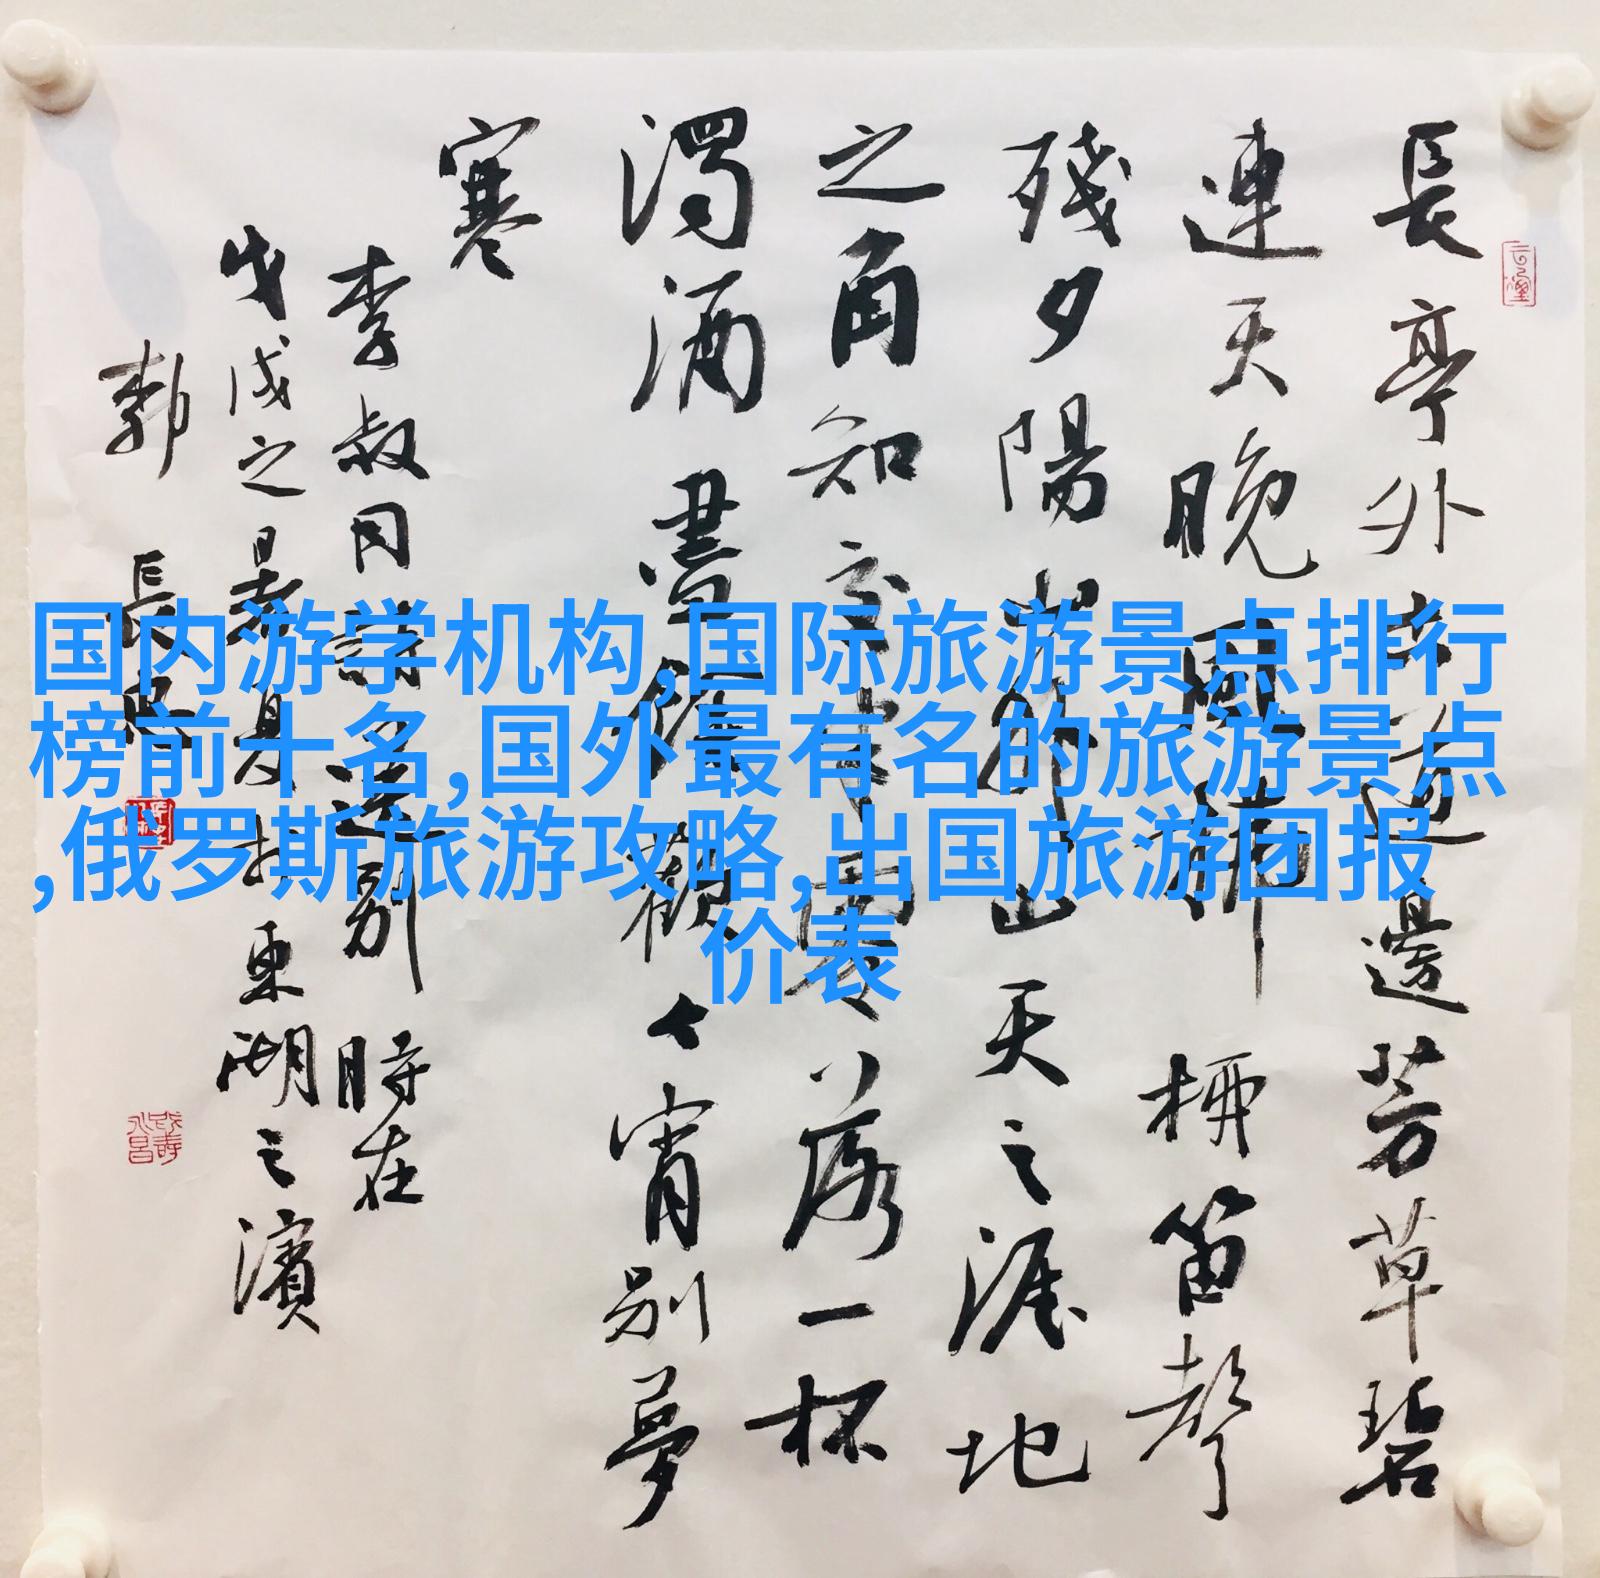 長亭外古道邊芳草碧
連天晚風拂柳笛聲
殘夕陽山外山天之涯地
之角知交半零落一杯
濁酒盡餘歡今宵別夢
寒
李叔同詩送別 時在
戊戌之暑夏於東湖之濱
長
国内游学机构,国际旅游景点排行
榜前十名,国外最有名的旅游景点
,俄罗斯旅游攻略,出国旅游团报
价表